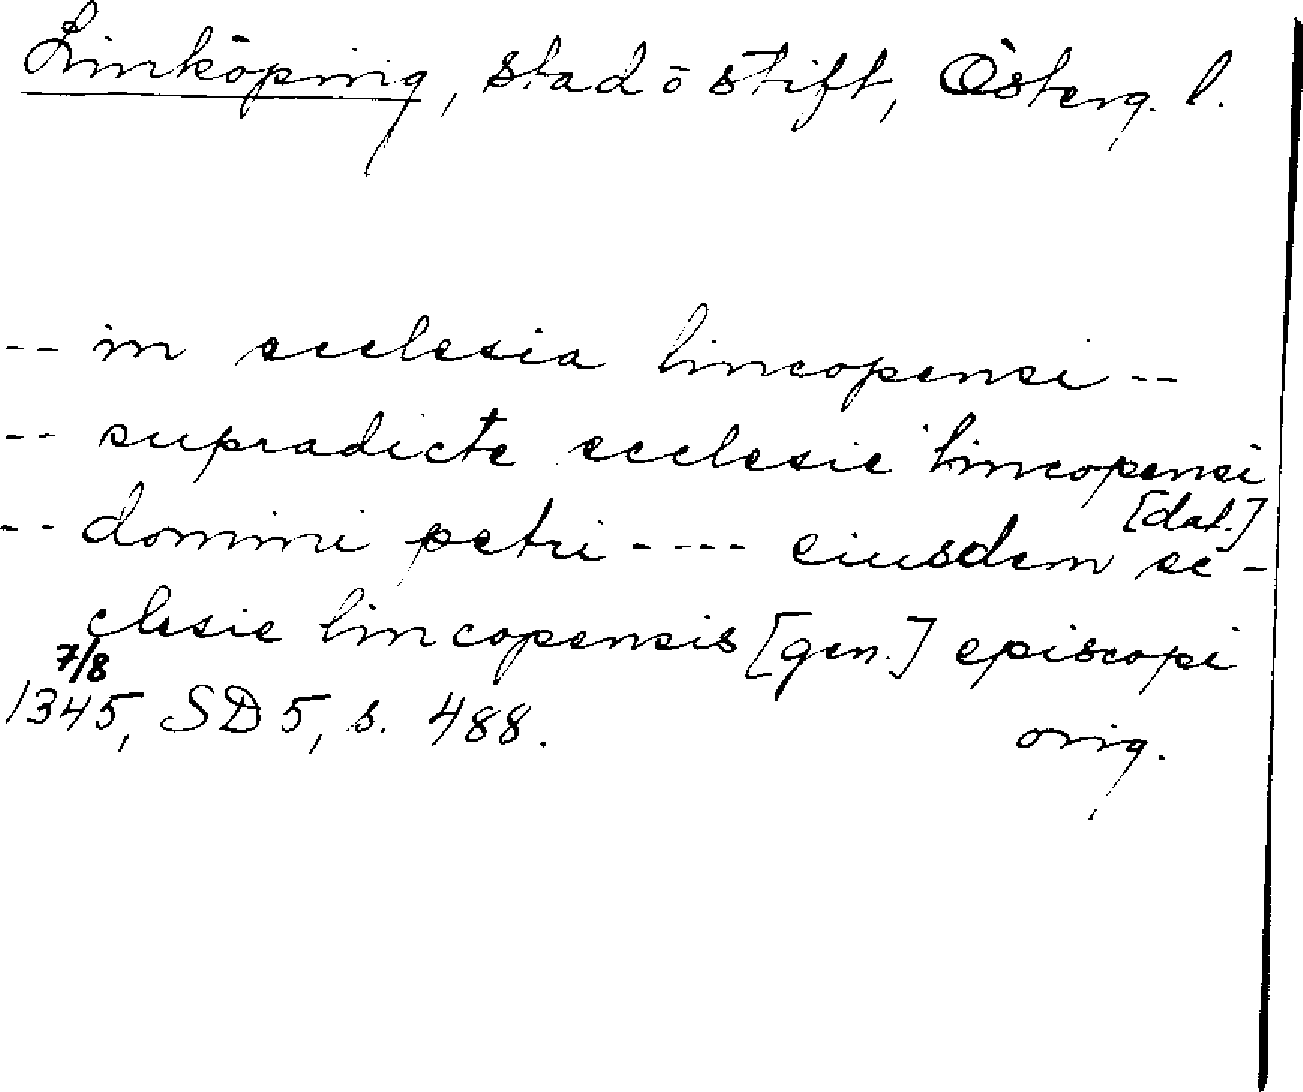 Linköping, stad ō stift, Österg. l.
-- in ecclesia lincopensi --
-- supradicte ecclesie lincopensi
[dat.]
-- domini petri ---- eiusdem ec-
clesie lincopensis [gen.] episcopi
7/8
1345, SD 5, s. 488. orig.